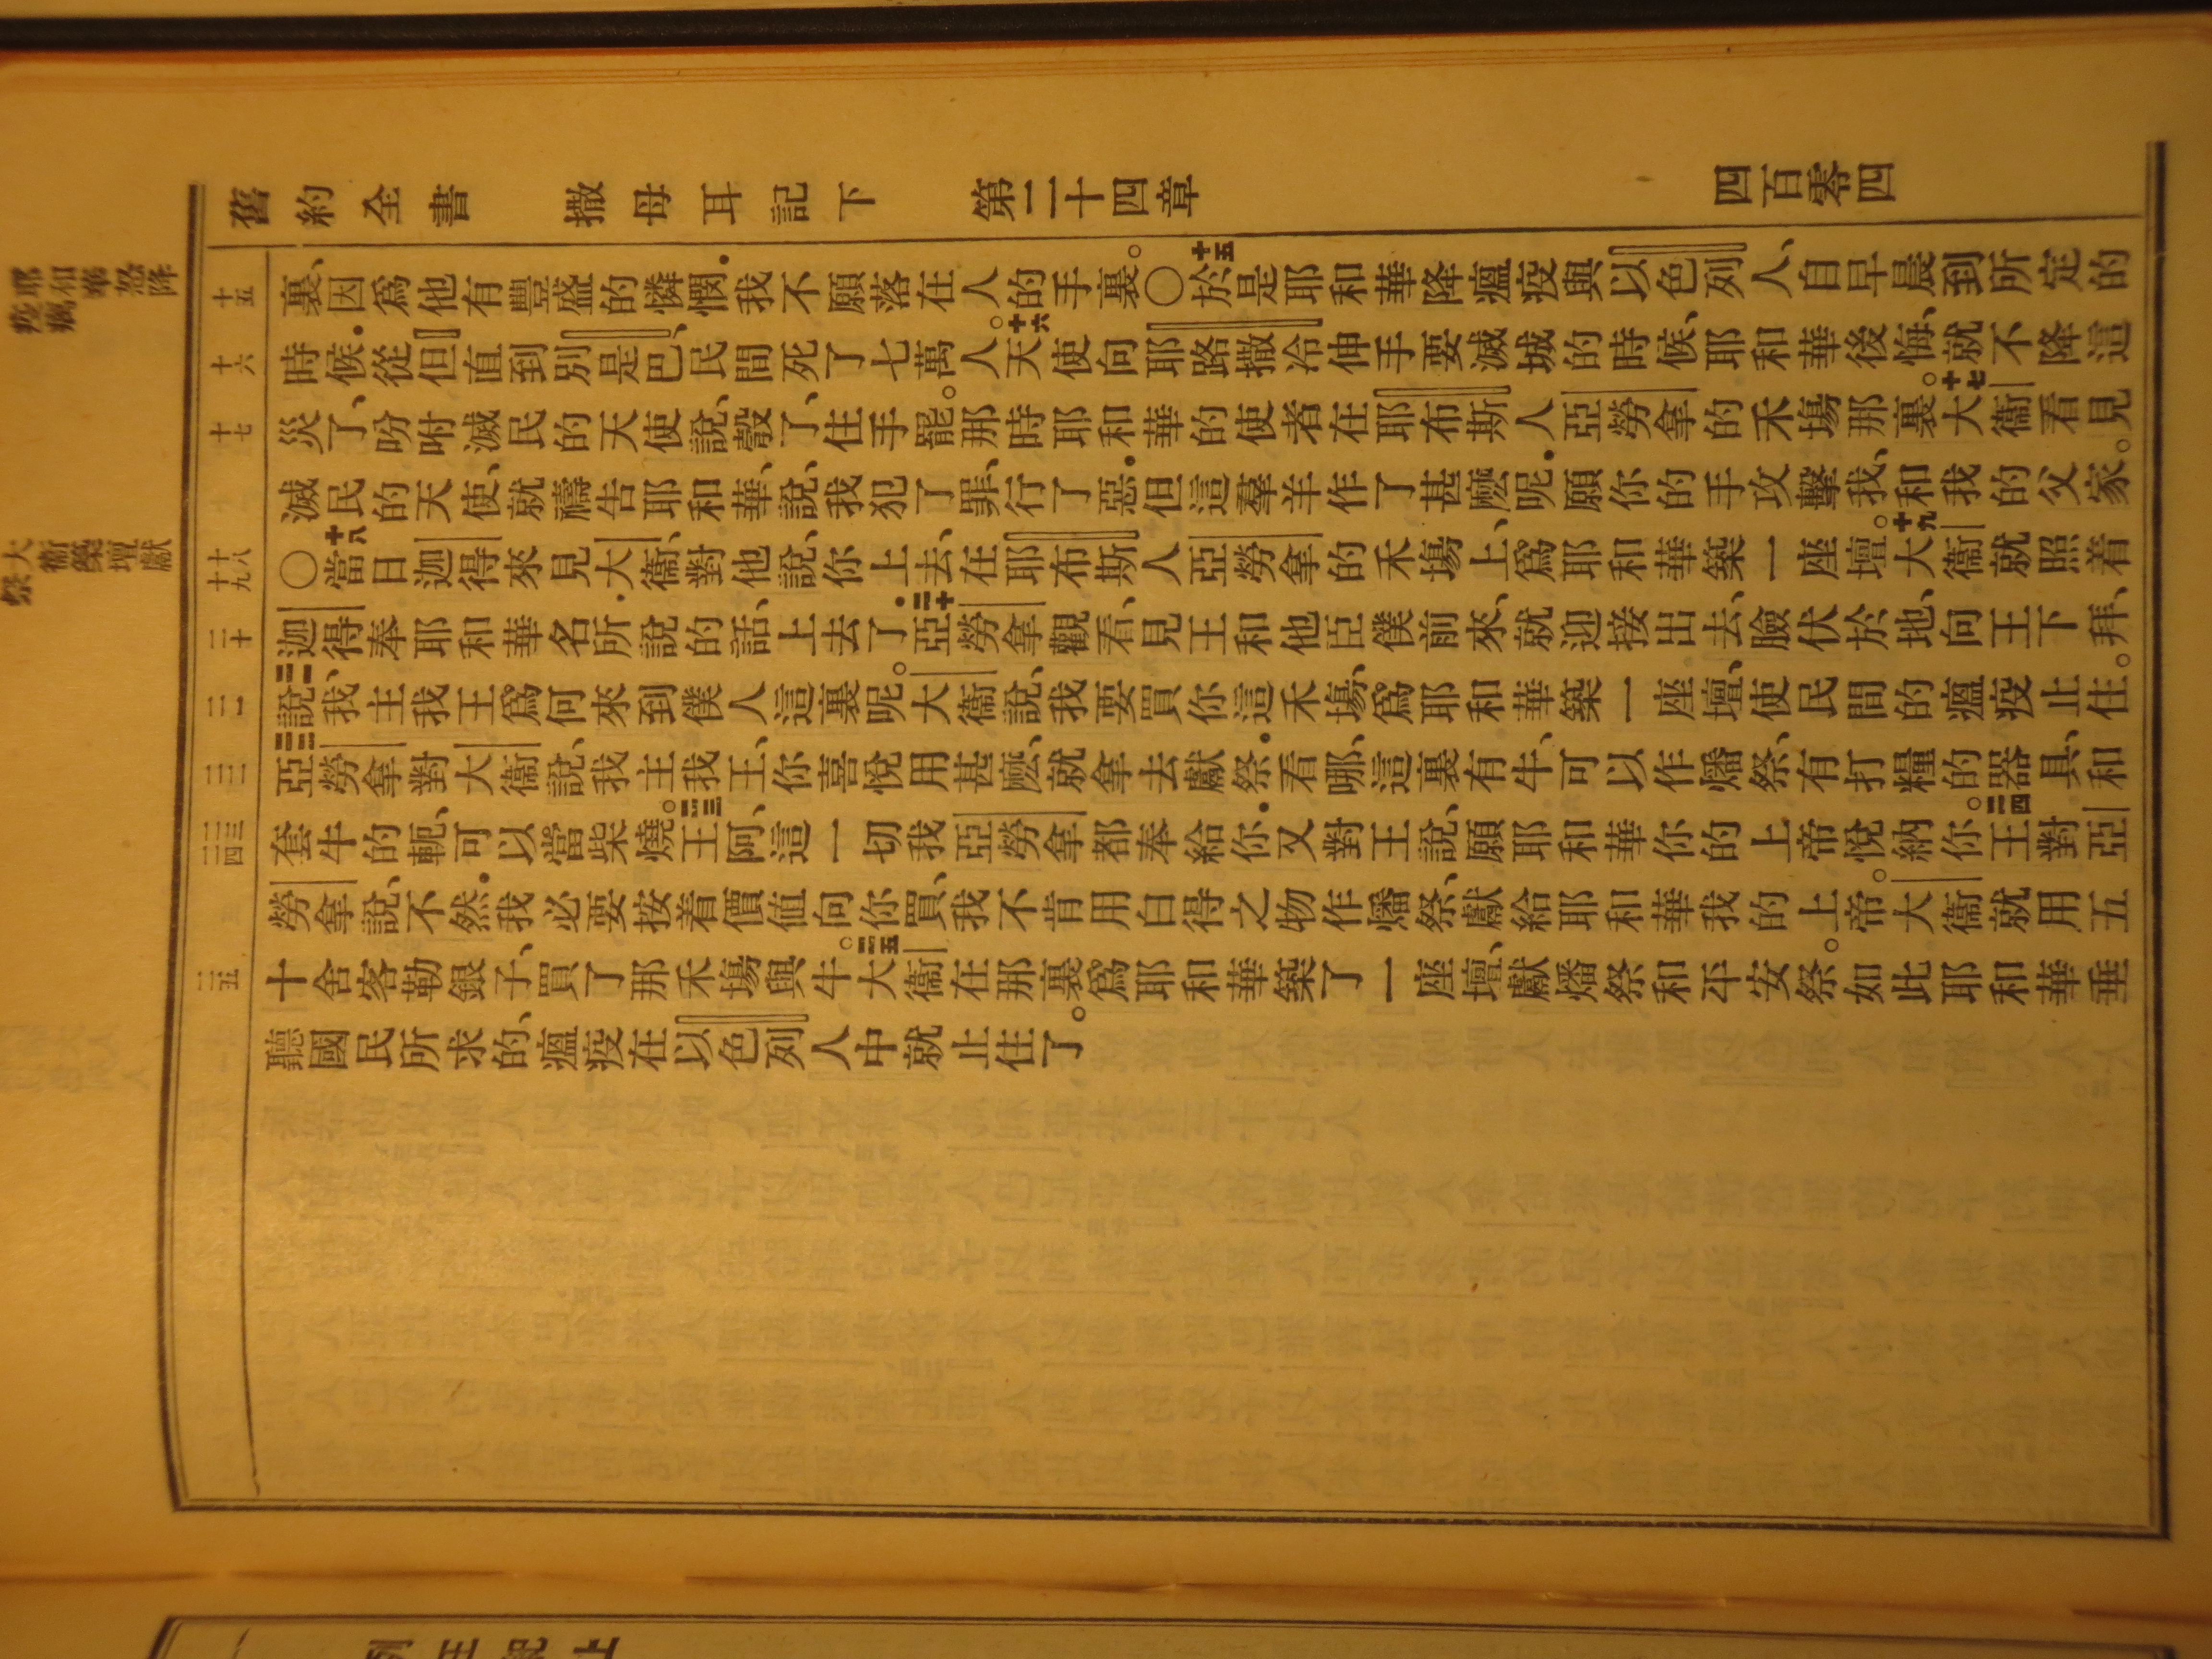 舊約全書 撒母耳記下 第二十四章 四百零四
耶和華怒降
十五
裏、因爲他有豐盛的憐憫．我不願落在人的手裏。〇十五於是耶和華降瘟疫與以色列人、自早晨到所定的
十六
時候．從但直到別是巴、民間死了七萬人。十六天使向耶路撒冷伸手要滅城的時候、耶和華後悔、就不降這
十七
災了、吩咐滅民的天使說、彀了、住手罷。那時耶和華的使者在耶布斯人亞勞拿的禾塲那裏。十七大衞看見
滅民的天使、就禱告耶和華、說、我犯了罪、行了惡．但這羣羊作了甚麽呢．願你的手攻擊我、和我的父家。
大衞築壇獻
祭
十八
十九
〇十八當日迦得來見大衞、對他說、你上去、在耶布斯人亞勞拿的禾塲上、爲耶和華築一座壇。十九大衞就照着
二十
迦得奉耶和華名所說的話、上去了．二十亞勞拿觀看、見王和他臣僕前來、就迎接出去、臉伏於地、向王下拜、
二一
二一說、我主我王爲何來到僕人這裏呢。大衞說、我要買你這禾塲、爲耶和華築一座壇、使民間的瘟疫止住。
二二
二二亞勞拿對大衞說、我主我王、你喜悅用甚麽、就拿去獻祭．看哪、這裏有牛、可以作燔祭、有打糧的器具、和
二三
二四
套牛的軛、可以當柴燒。二三王阿、這一切我亞勞拿都奉給你．又對王說、願耶和華你的上帝悅納你。二四王對亞
勞拿說、不然．我必要按着價值向你買、我不肯用白得之物作燔祭、獻給耶和華我的上帝。大衞就用五
二五
十舍客勒銀子、買了那禾塲與牛。二五大衞在那裏爲耶和華築了一座壇、獻燔祭和平安祭。如此耶和華垂
聽國民所求的、瘟疫在以色列人中就止住了。
列王紀上